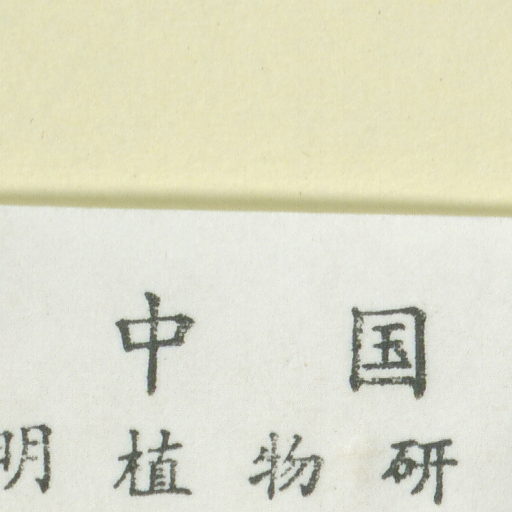 中国
明植物研